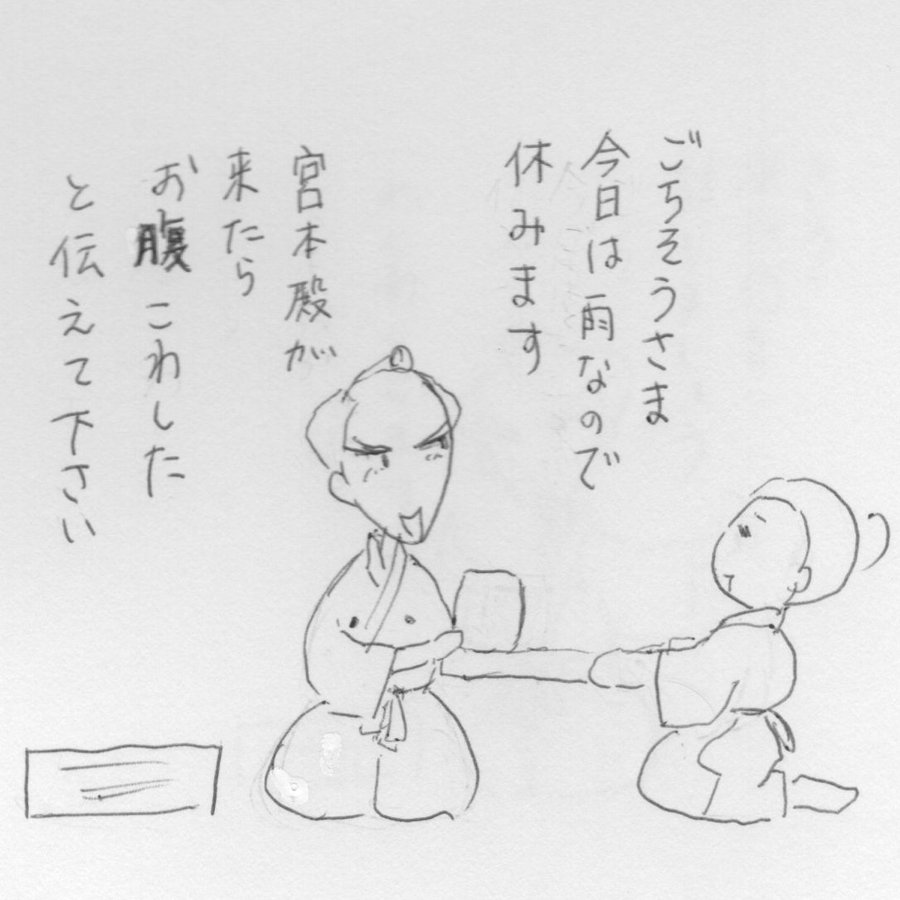 ごちそうさま
今日は雨なので
休みます
宮本殿が
来たら
お腹こわした
と伝えて下さい